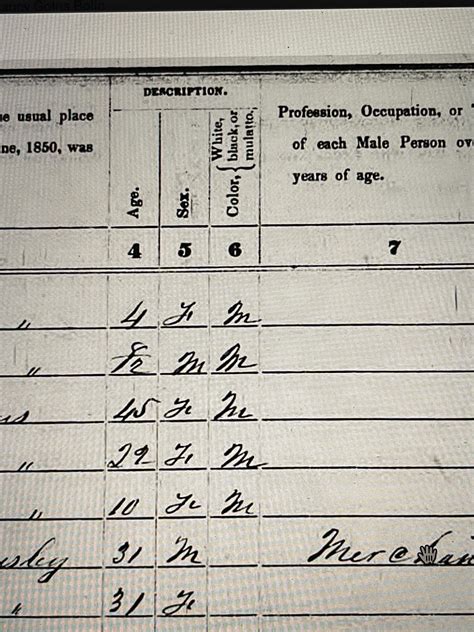 DESCRIPTION.
e usual place
ne, 1850, was
Age.
Sex.
Color, { White, black, or mulatto.
Profession, Occupation, or
of each Male Person ov
years of age.
4 5 6 7
" 4 F M
" 8/12 M M
45 F M
" 29 F M
" 10 F M
sley 31 M Merchan
" 31 F